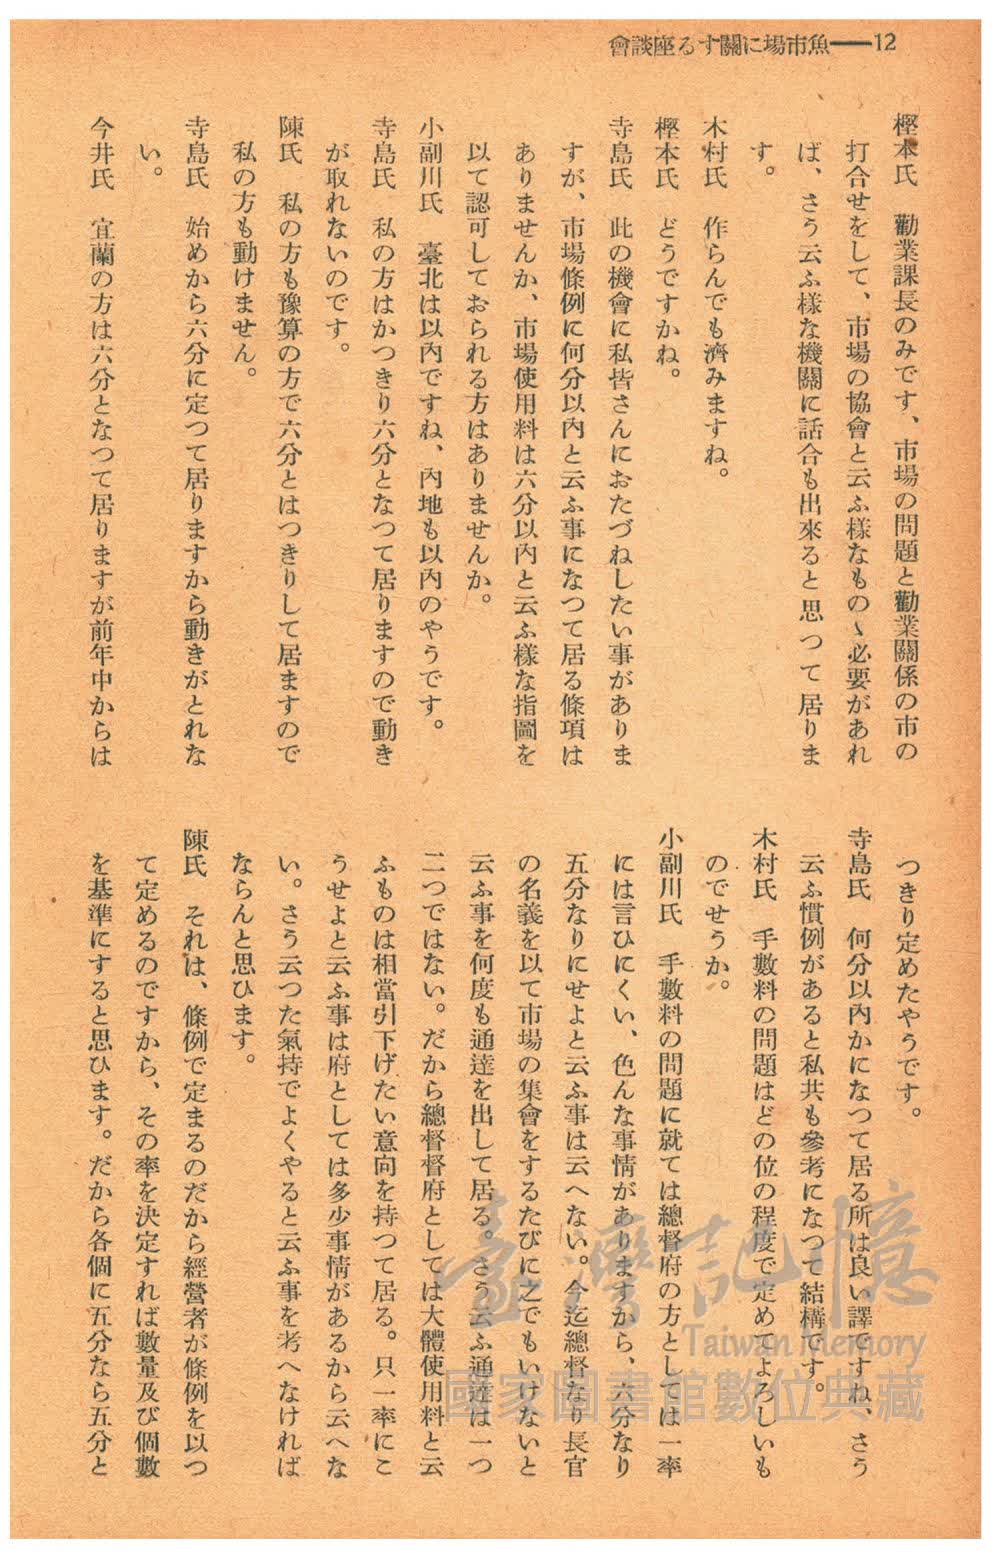 會談座るす關に場市魚━━12
樫本氏　勸業課長のみです、市場の問題と勸業關係の市の
打合せをして、市場の協會と云ふ樣なものゝ必要があれ
ば、さう云ふ樣な機關に話合も出來ると思つて居りま
す。
木村氏　作らんでも濟みますね。
樫本氏　どうですかね。
寺島氏　此の機會に私皆さんにおたづねしたい事がありま
すが、市場條例に何分以內と云ふ事になつて居る條項は
ありませんか、市場使用料は六分以內と云ふ樣な指圖を
以て認可しておられる方はありませんか。
小副川氏　臺北は以內ですね、內地も以內のやうです。
寺島氏　私の方はかつきり六分となつて居りますので動き
が取れないのです。
陳氏　私の方も豫算の方で六分とはつきりして居ますので
私の方も動けません。
寺島氏　始めから六分に定つて居りますから動きがとれな
い。
今井氏　宜蘭の方は六分となつて居りますが前年中からは
つきり定めたやうです。
寺島氏　何分以內かになつて居る所は良い譯ですね、さう
云ふ慣例があると私共も參考になつて結構です。
木村氏　手數料の問題はどの位の程度で定めてよろしいも
のでせうか。
小副川氏　手數料の問題に就ては總督府の方としては一率
には言ひにくい、色んな事情がありますから、六分なり
五分なりにせよと云ふ事は云へない。今迄總督なり長官
の名義を以て市場の集會をするたびに之でもいけないと
云ふ事を何度も通達を出して居る。さう云ふ通達は一つ
二つではない。だから總督督府としては大體使用料と云
ふものは相當引下げたい意向を持つて居る。只一率にこ
うせよと云ふ事は府としては多少事情があるから云へな
い。さう云つた氣持でよくやると云ふ事を考へなければ
ならんと思ひます。
陳氏　それは、條例で定まるのだから經營者が條例を以つ
て定めるのですから、その率を決定すれば數量及び個數
を基準にすると思ひます。だから各個に五分なら五分と
臺灣記憶
Taiwan Memory
國家圖書館數位典藏